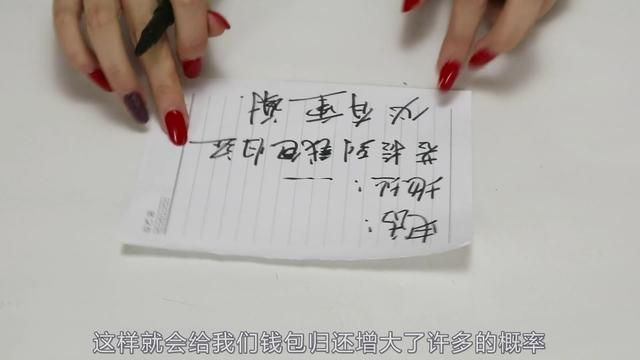 电话:
地址: ---
若捡到钱包归还
必有重谢.
这样就会给我们钱包归还增大了许多的概率